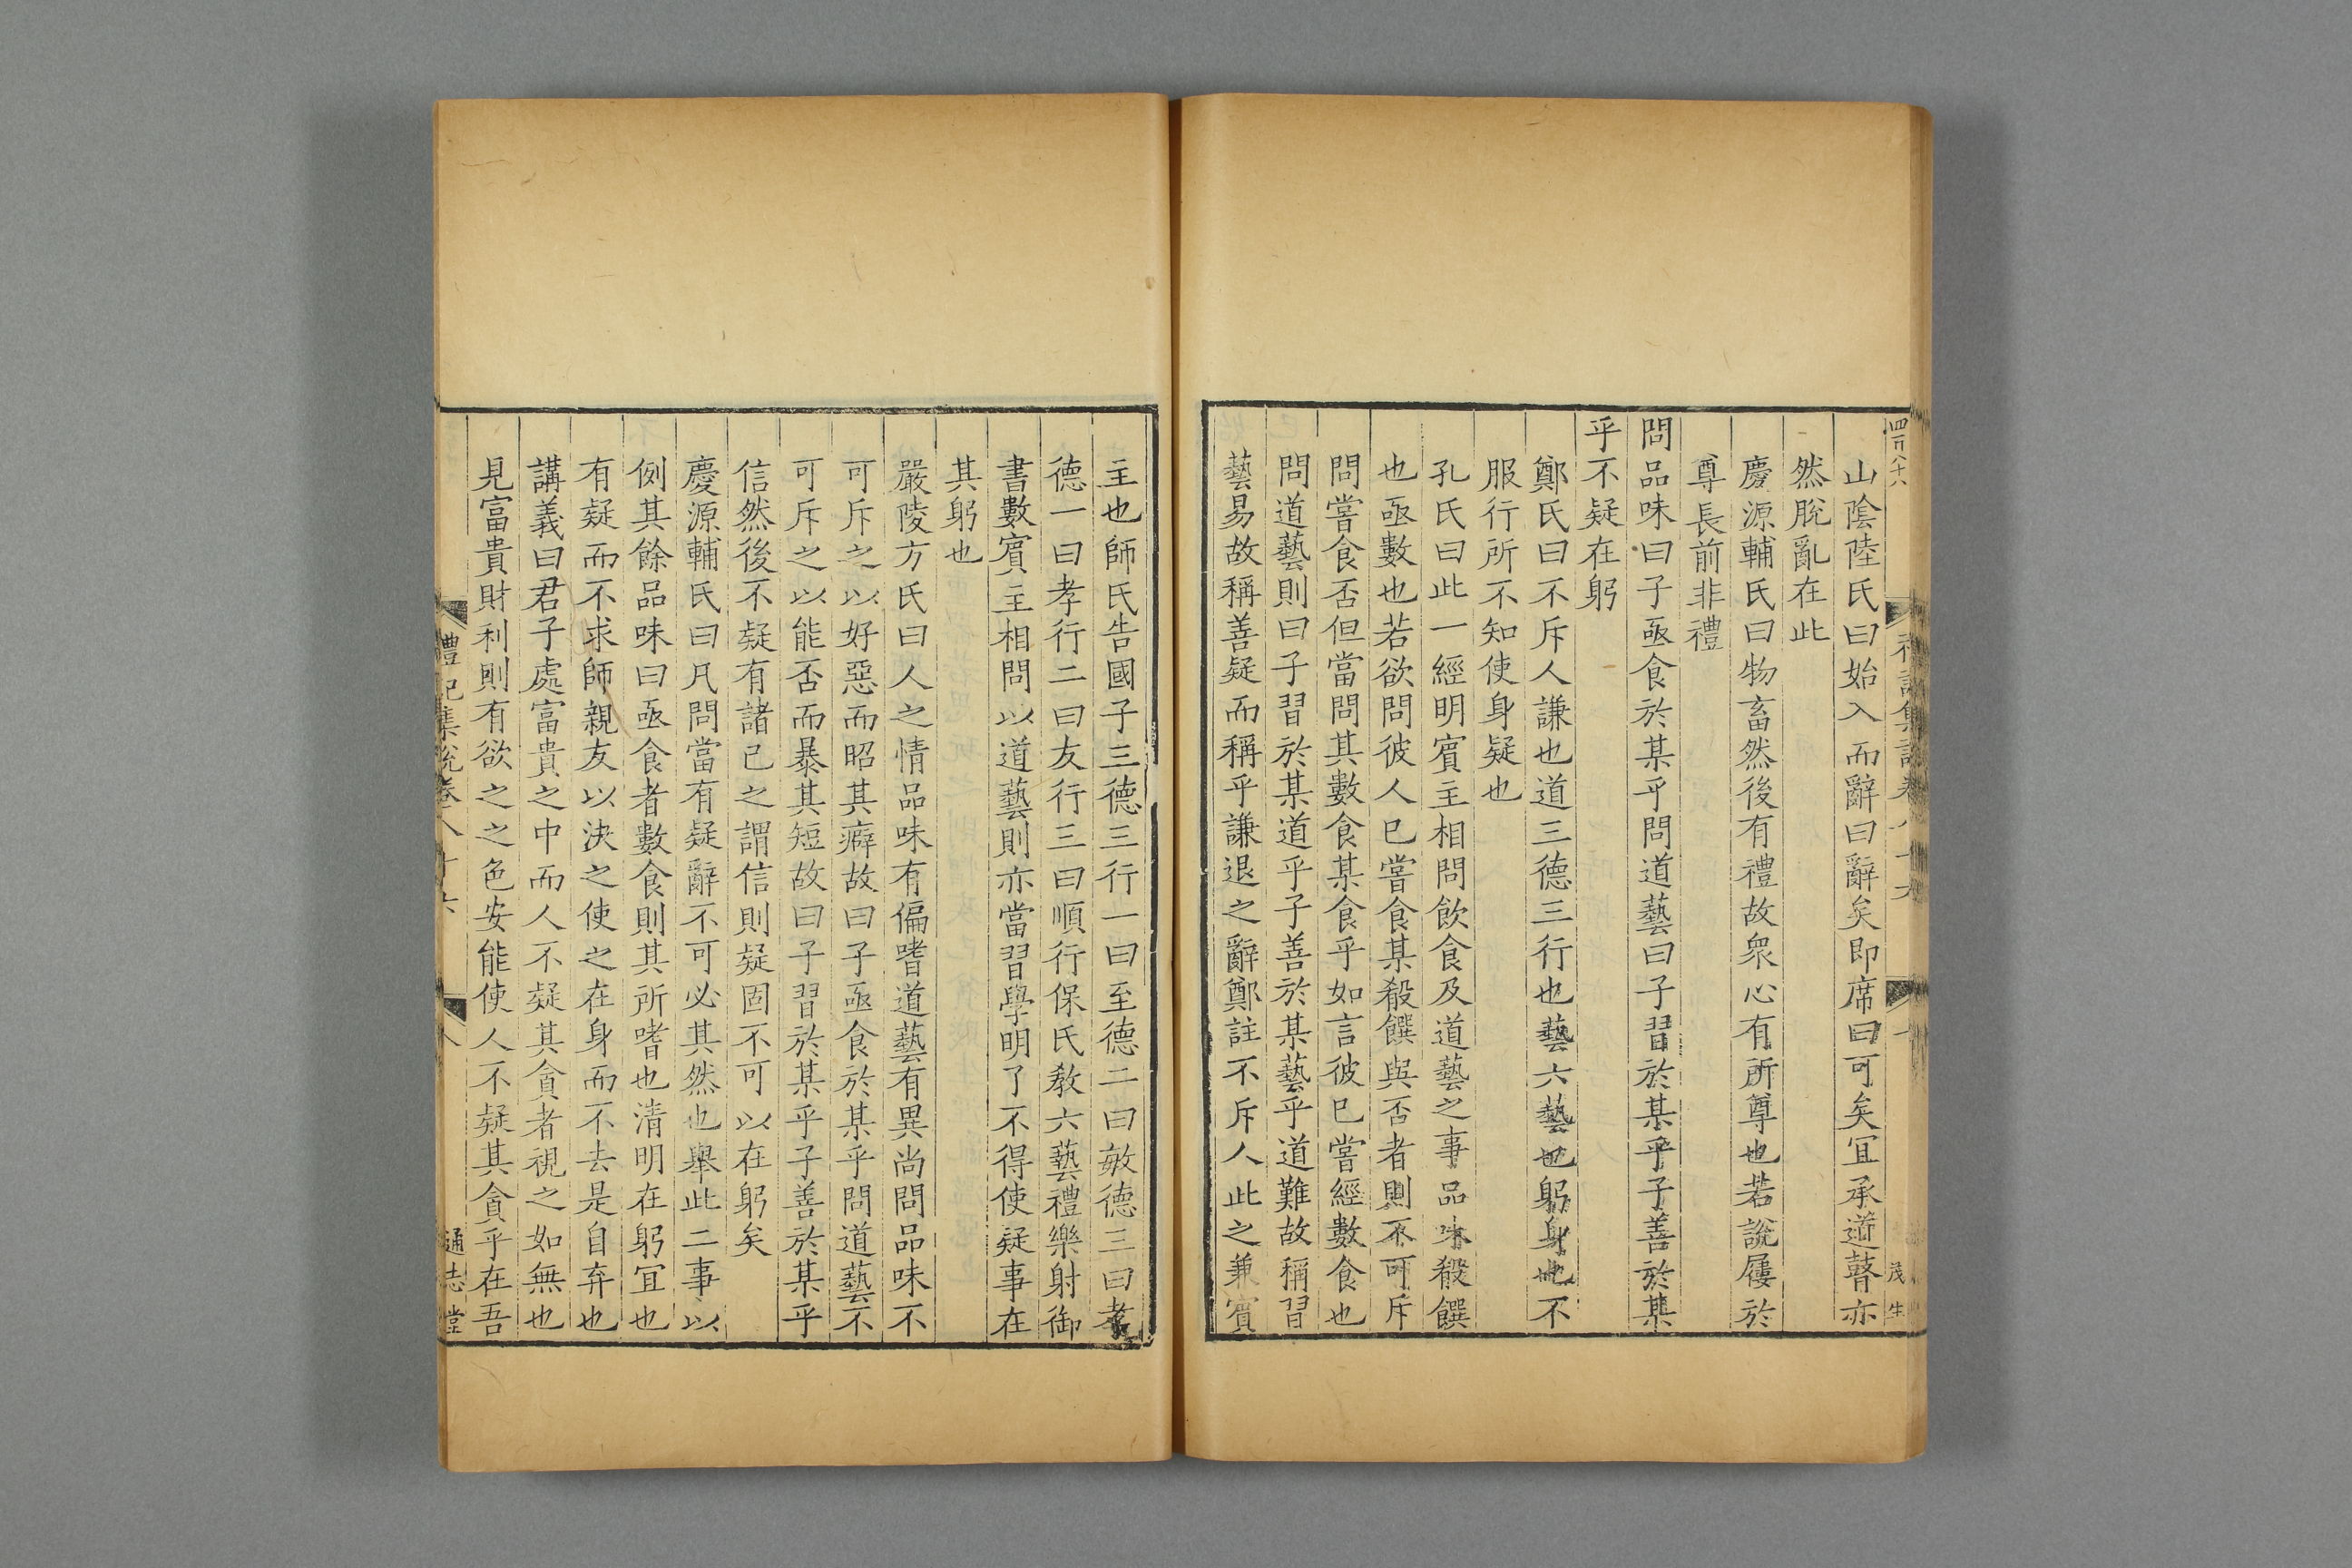 四百八十六
禮記集說卷八十六
茂生
山陰陸氏曰始入而辭曰辭矣即席曰可矣宜承道瞽亦
然脫亂在此
慶源輔氏曰物畜然後有禮故衆心有所尊也若說屨於
尊長前非禮
問品味曰子亟食於某乎問道藝曰子習於某乎子善於某
乎不疑在躬
鄭氏曰不斥人謙也道三德三行也藝六藝也躬身也不
服行所不知使身疑也
孔氏曰此一經明賓主相問飲食及道藝之事品味殽饌
也亟數也若欲問彼人已嘗食某殽饌與否者則不可斥
問嘗食否但當問其數食某食乎如言彼已嘗經數食也
問道藝則曰子習於某道乎子善於某藝乎道難故稱習
藝易故稱善疑而稱乎謙退之辭鄭註不斥人此之兼賓
主也師氏告國子三德三行一曰至德二曰敏德三曰孝
德一曰孝行二曰友行三曰順行保氏敎六藝禮樂射御
書數賓主相問以道藝則亦當習學明了不得使疑事在
其躬也
嚴陵方氏曰人之情品味有偏嗜道藝有異尚問品味不
可斥之以好惡而昭其癖故曰子亟食於某乎問道藝不
可斥之以能否而暴其短故曰子習於某乎子善於某乎
信然後不疑有諸己之謂信則疑固不可以在躬矣
慶源輔氏曰凡問當有疑辭不可必其然也舉此二事以
例其餘品味曰亟食者數食則其所嗜也清明在躬宜也
有疑而不求師親友以決之使之在身而不去是自弃也
講義曰君子處富貴之中而人不疑其貪者視之如無也
見富貴財利則有欲之之色安能使人不疑其貪乎在吾
禮記集說卷八十六
八
通志堂